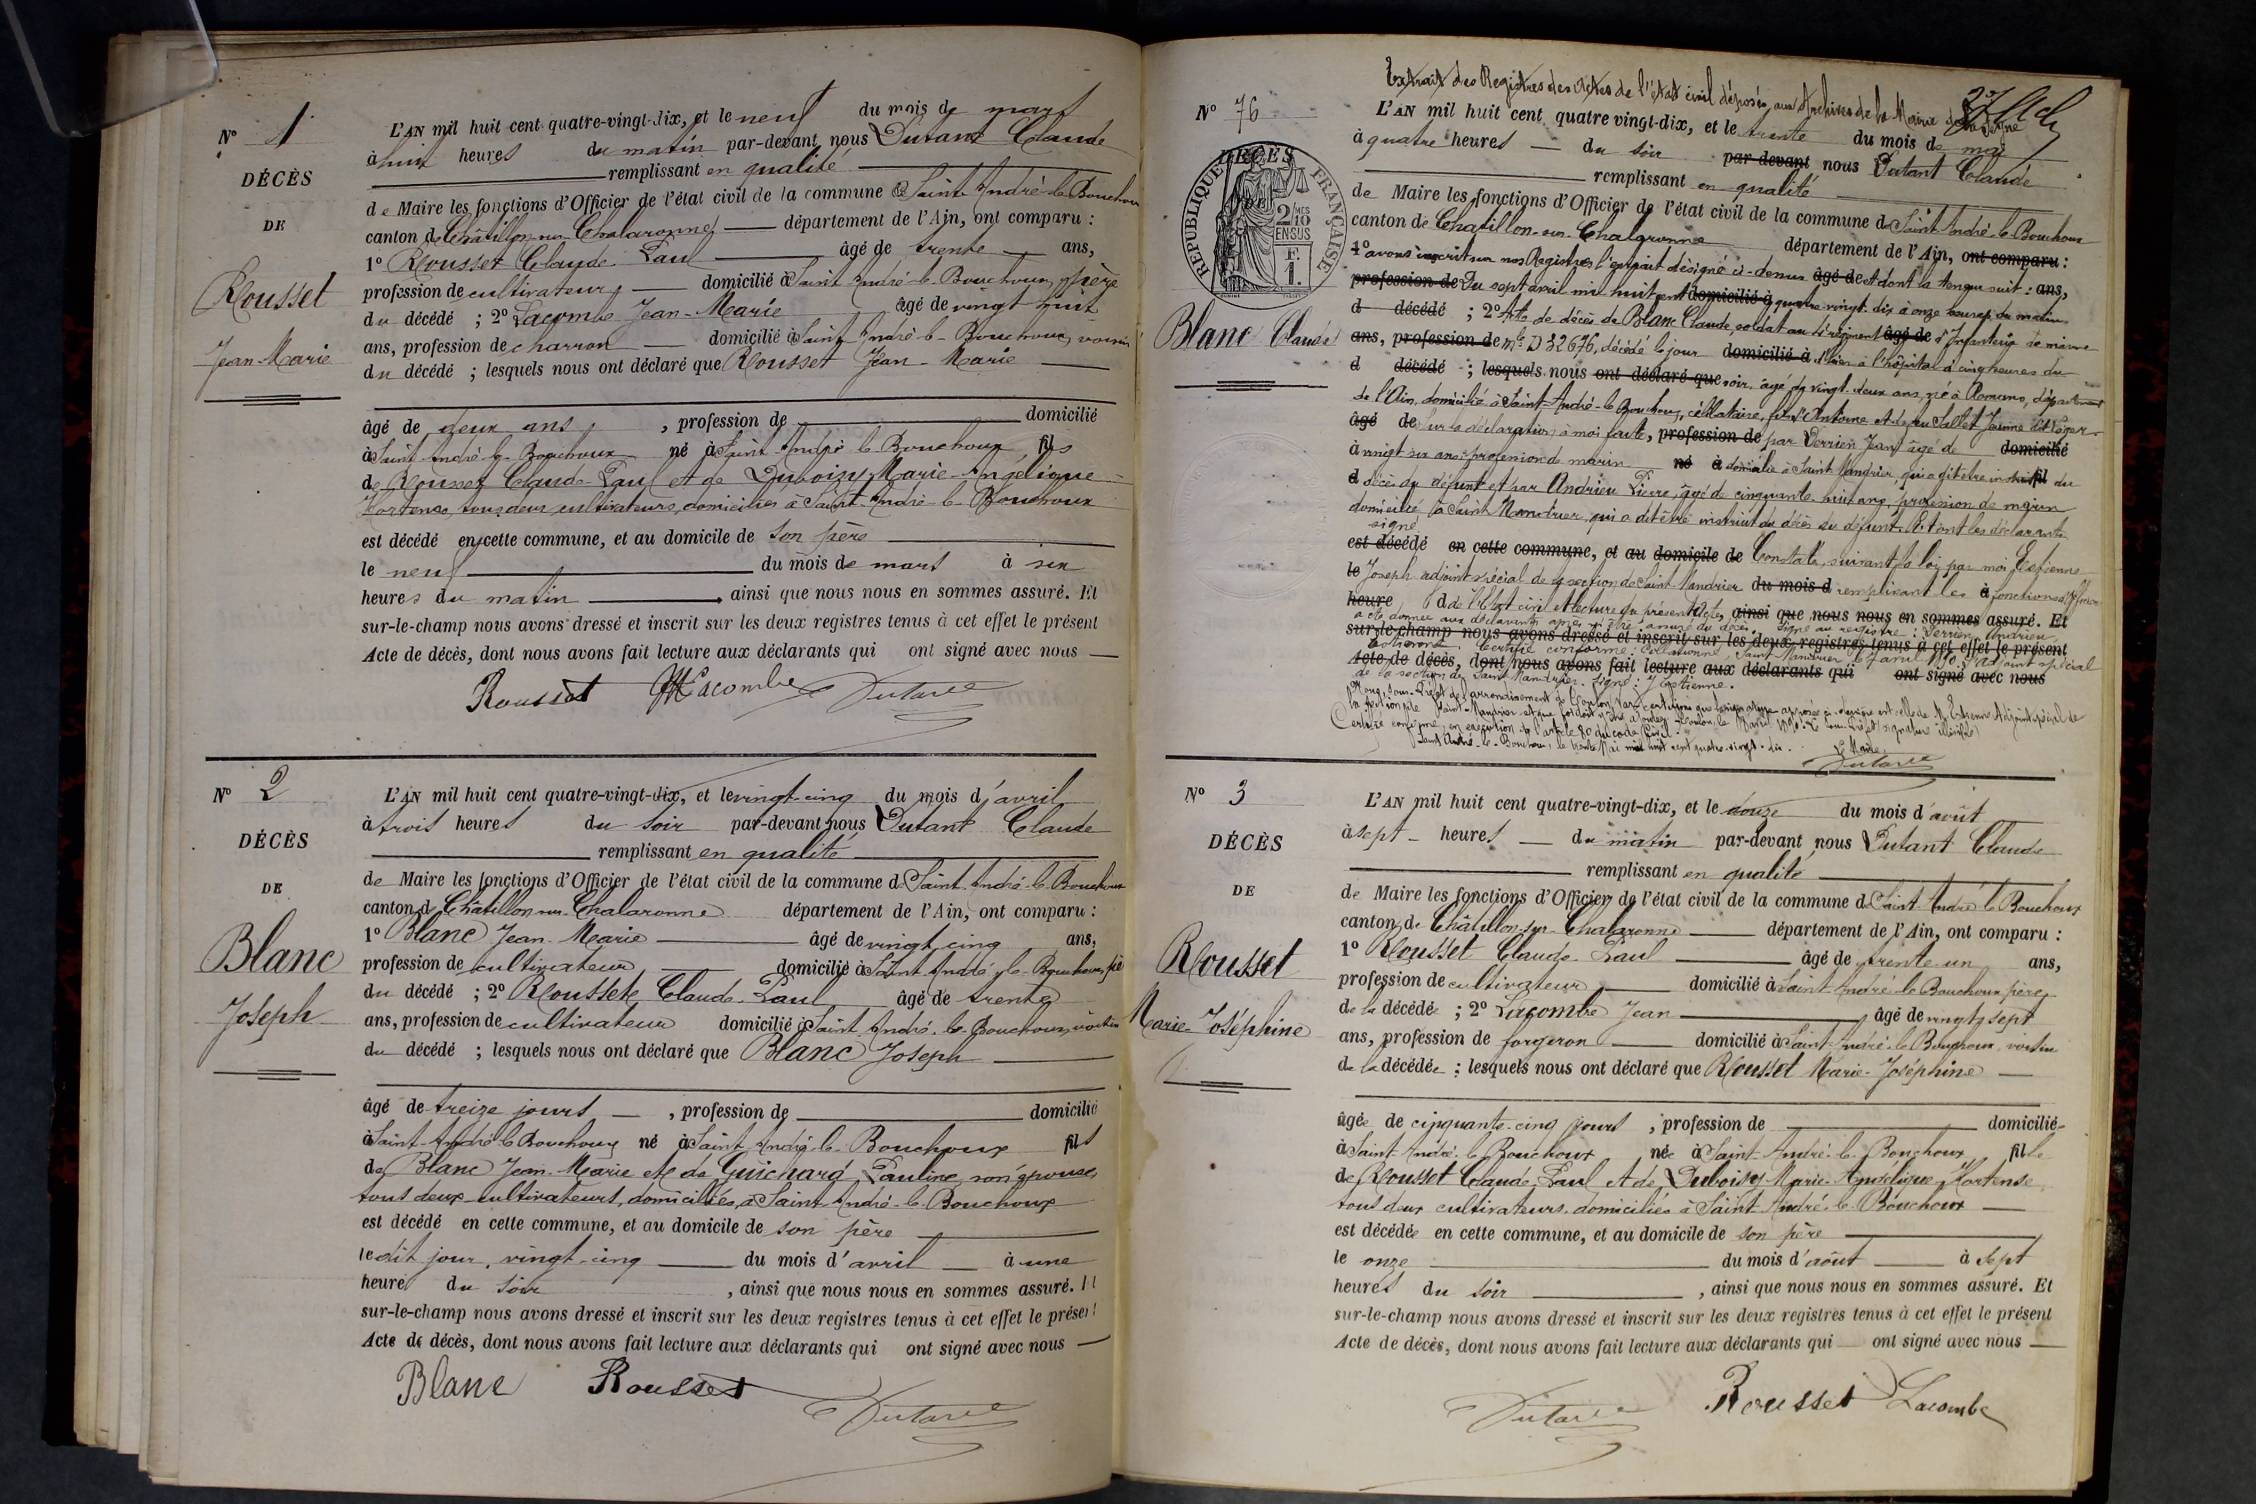 Nº 1
DÉCÈS
DE
Rousset
Jean-Marie
L'AN mil huit cent quatre-vingt-dix, et le neuf du mois de mars
à huit heures du matin par-devant nous Dutant Claude
remplissant en qualité
de Maire les fonctions d'Officier de l'état civil de la commune de Saint-André-le-Bouchoux
canton de Châtillon-sur-Chalaronne département de l'Ain, ont comparu :
1º Rousset Claude Paul âgé de trente ans,
profession de cultivateur domicilié à Saint-André-le-Bouchoux, père
du décédé ; 2º Lacombe Jean-Marie âgé de vingt huit
ans, profession de charron domicilié à Saint-André-le-Bouchoux, voisin
du décédé ; lesquels nous ont déclaré que Rousset Jean-Marie
âgé de deux ans , profession de domicilié
à Saint-André-le-Bouchoux né à Saint-André-le-Bouchoux fils
de Rousset Claude Paul et de Duboisy Marie-Angélique-
Hortense, tous deux cultivateurs, domiciliés à Saint-André-le-Bouchoux
est décédé en cette commune, et au domicile de son père
le neuf du mois de mars à six
heures du matin , ainsi que nous nous en sommes assuré. Et
sur-le-champ nous avons dressé et inscrit sur les deux registres tenus à cet effet le présent
Acte de décès, dont nous avons fait lecture aux déclarants qui ont signé avec nous
Rousset Lacombe Dutant
Nº 2
DÉCÈS
DE
Blanc
Joseph
L'AN mil huit cent quatre-vingt-dix, et le vingt-cinq du mois d'avril
à trois heures du soir par-devant nous Dutant Claude
remplissant en qualité
de Maire les fonctions d'Officier de l'état civil de la commune de Saint-André-le-Bouchoux
canton de Châtillon-sur-Chalaronne département de l'Ain, ont comparu :
1º Blanc Jean-Marie âgé de vingt-cinq ans,
profession de cultivateur domicilié à Saint-André-le-Bouchoux, père
du décédé ; 2º Rousset Claude-Paul âgé de trente
ans, profession de cultivateur domicilié à Saint-André-le-Bouchoux, voisin
du décédé ; lesquels nous ont déclaré que Blanc Joseph
âgé de treize jours , profession de domicilié
à Saint-André-le-Bouchoux né à Saint-André-le-Bouchoux fils
de Blanc Jean-Marie et de Guichard Pauline, son épouse,
tous deux cultivateurs, domiciliés, à Saint-André-le-Bouchoux
est décédé en cette commune, et au domicile de son père
le dit jour, vingt-cinq du mois d'avril à une
heure du soir , ainsi que nous nous en sommes assuré. Et
sur-le-champ nous avons dressé et inscrit sur les deux registres tenus à cet effet le présent
Acte de décès, dont nous avons fait lecture aux déclarants qui ont signé avec nous
Blanc Rousset Dutant
Extrait des Registres des Actes de l'état civil déposés aux Archives de la Mairie de la Seyne
Nº 76
RÉPUBLIQUE FRANÇAISE
DÉCÈS
2/10 MES
EN SUS
F. 1.
Blanc Claude
L'AN mil huit cent quatre vingt-dix, et le trente du mois de mai
à quatre heures du soir par-devant nous Dutant Claude
remplissant en qualité
de Maire les fonctions d'Officier de l'état civil de la commune de Saint-André-le-Bouchoux
canton de Châtillon-sur-Chalaronne département de l'Ain, ont comparu :
1º avons inscrit sur nos Registres l'extrait désigné ci-dessus âgé de et dont la teneur suit : ans,
profession de Du sept avril mil huit cent domicilié à quatre vingt-dix à onze heures du matin
d décédé ; 2º Acte de décès de Blanc Claude, soldat au 4e régiment âgé de d'Infanterie de marine
ans, profession de mle D 32676, décédé le jour domicilié à d'hier à l'hôpital à cinq heures du
d décédé ; lesquels nous ont déclaré que soir, âgé de vingt-deux ans, né à Romans, département
de l'Ain, domicilié à Saint-André-le-Bouchoux, célibataire, fils d'Antoine et de feu Jeanne
âgé de Sur la déclaration à moi faite, profession de par Verrien Jean âgé de domicilié
à vingt six ans profession de marin né à domicilié à Saint Mandrier, qui a dit être instruit fil du
d décès du défunt et par Andrieu Pierre, âgé de cinquante huit ans, profession de marin
domicilié à Saint Mandrier, qui a dit être instruit du décès du défunt. Et ont les déclarants
signé
est décédé en cette commune, et au domicile de Constaté, suivant la loi, par moi, Estienne
le Joseph adjoint spécial de la section de Saint Mandrier du mois d remplissant les à fonctions d'officier
heure d de l'Etat civil et lecture du présent Acte, ainsi que nous nous en sommes assuré. Et
a été donnée aux déclarants après m'être assuré du décès. Signé au registre : Verrien, Andrieu,
sur-le-champ nous avons dressé et inscrit sur les deux registres tenus à cet effet le présent
Estienne. Certifié conforme : Saint Mandrier adjoint spécial
Acte de décès, dont nous avons fait lecture aux déclarants qui ont signé avec nous
de la section de Saint Mandrier. Signé : J. Estienne.
Nous, Sous-Préfet de l'arrondissement de Toulon (Var) certifions que la signature apposée ci-dessus est celle de M. Estienne Adjoint spécial de
la section de Saint-Mandrier (signature illisible)
Certifié conforme, en exécution de l'article 80 du code Civil.
Saint-André-le-Bouchoux, le trente Mai mil huit cent quatre-vingt-dix.
Le Maire
Dutant
Nº 3
DÉCÈS
DE
Rousset
Marie-Joséphine
L'AN mil huit cent quatre-vingt-dix, et le douze du mois d'août
à sept heures du matin par-devant nous Dutant Claude
remplissant en qualité
de Maire les fonctions d'Officier de l'état civil de la commune de Saint-André-le-Bouchoux
canton de Châtillon-sur-Chalaronne département de l'Ain, ont comparu :
1º Rousset Claude-Paul âgé de trente-un ans,
profession de cultivateur domicilié à Saint-André-le-Bouchoux père
de la décédée ; 2º Lacombe Jean âgé de vingt-sept
ans, profession de forgeron domicilié à Saint-André-le-Bouchoux voisin
de la décédée ; lesquels nous ont déclaré que Rousset Marie-Joséphine
âgée de cinquante-cinq jours , profession de domiciliée
à Saint-André-le-Bouchoux née à Saint-André-le-Bouchoux fille
de Rousset Claude-Paul et de Duboisy Marie-Angélique-Hortense
tous deux cultivateurs domiciliés à Saint-André-le-Bouchoux
est décédée en cette commune, et au domicile de son père
le onze du mois d'août à sept
heures du soir , ainsi que nous nous en sommes assuré. Et
sur-le-champ nous avons dressé et inscrit sur les deux registres tenus à cet effet le présent
Acte de décès, dont nous avons fait lecture aux déclarants qui ont signé avec nous
Dutant Rousset Lacombe